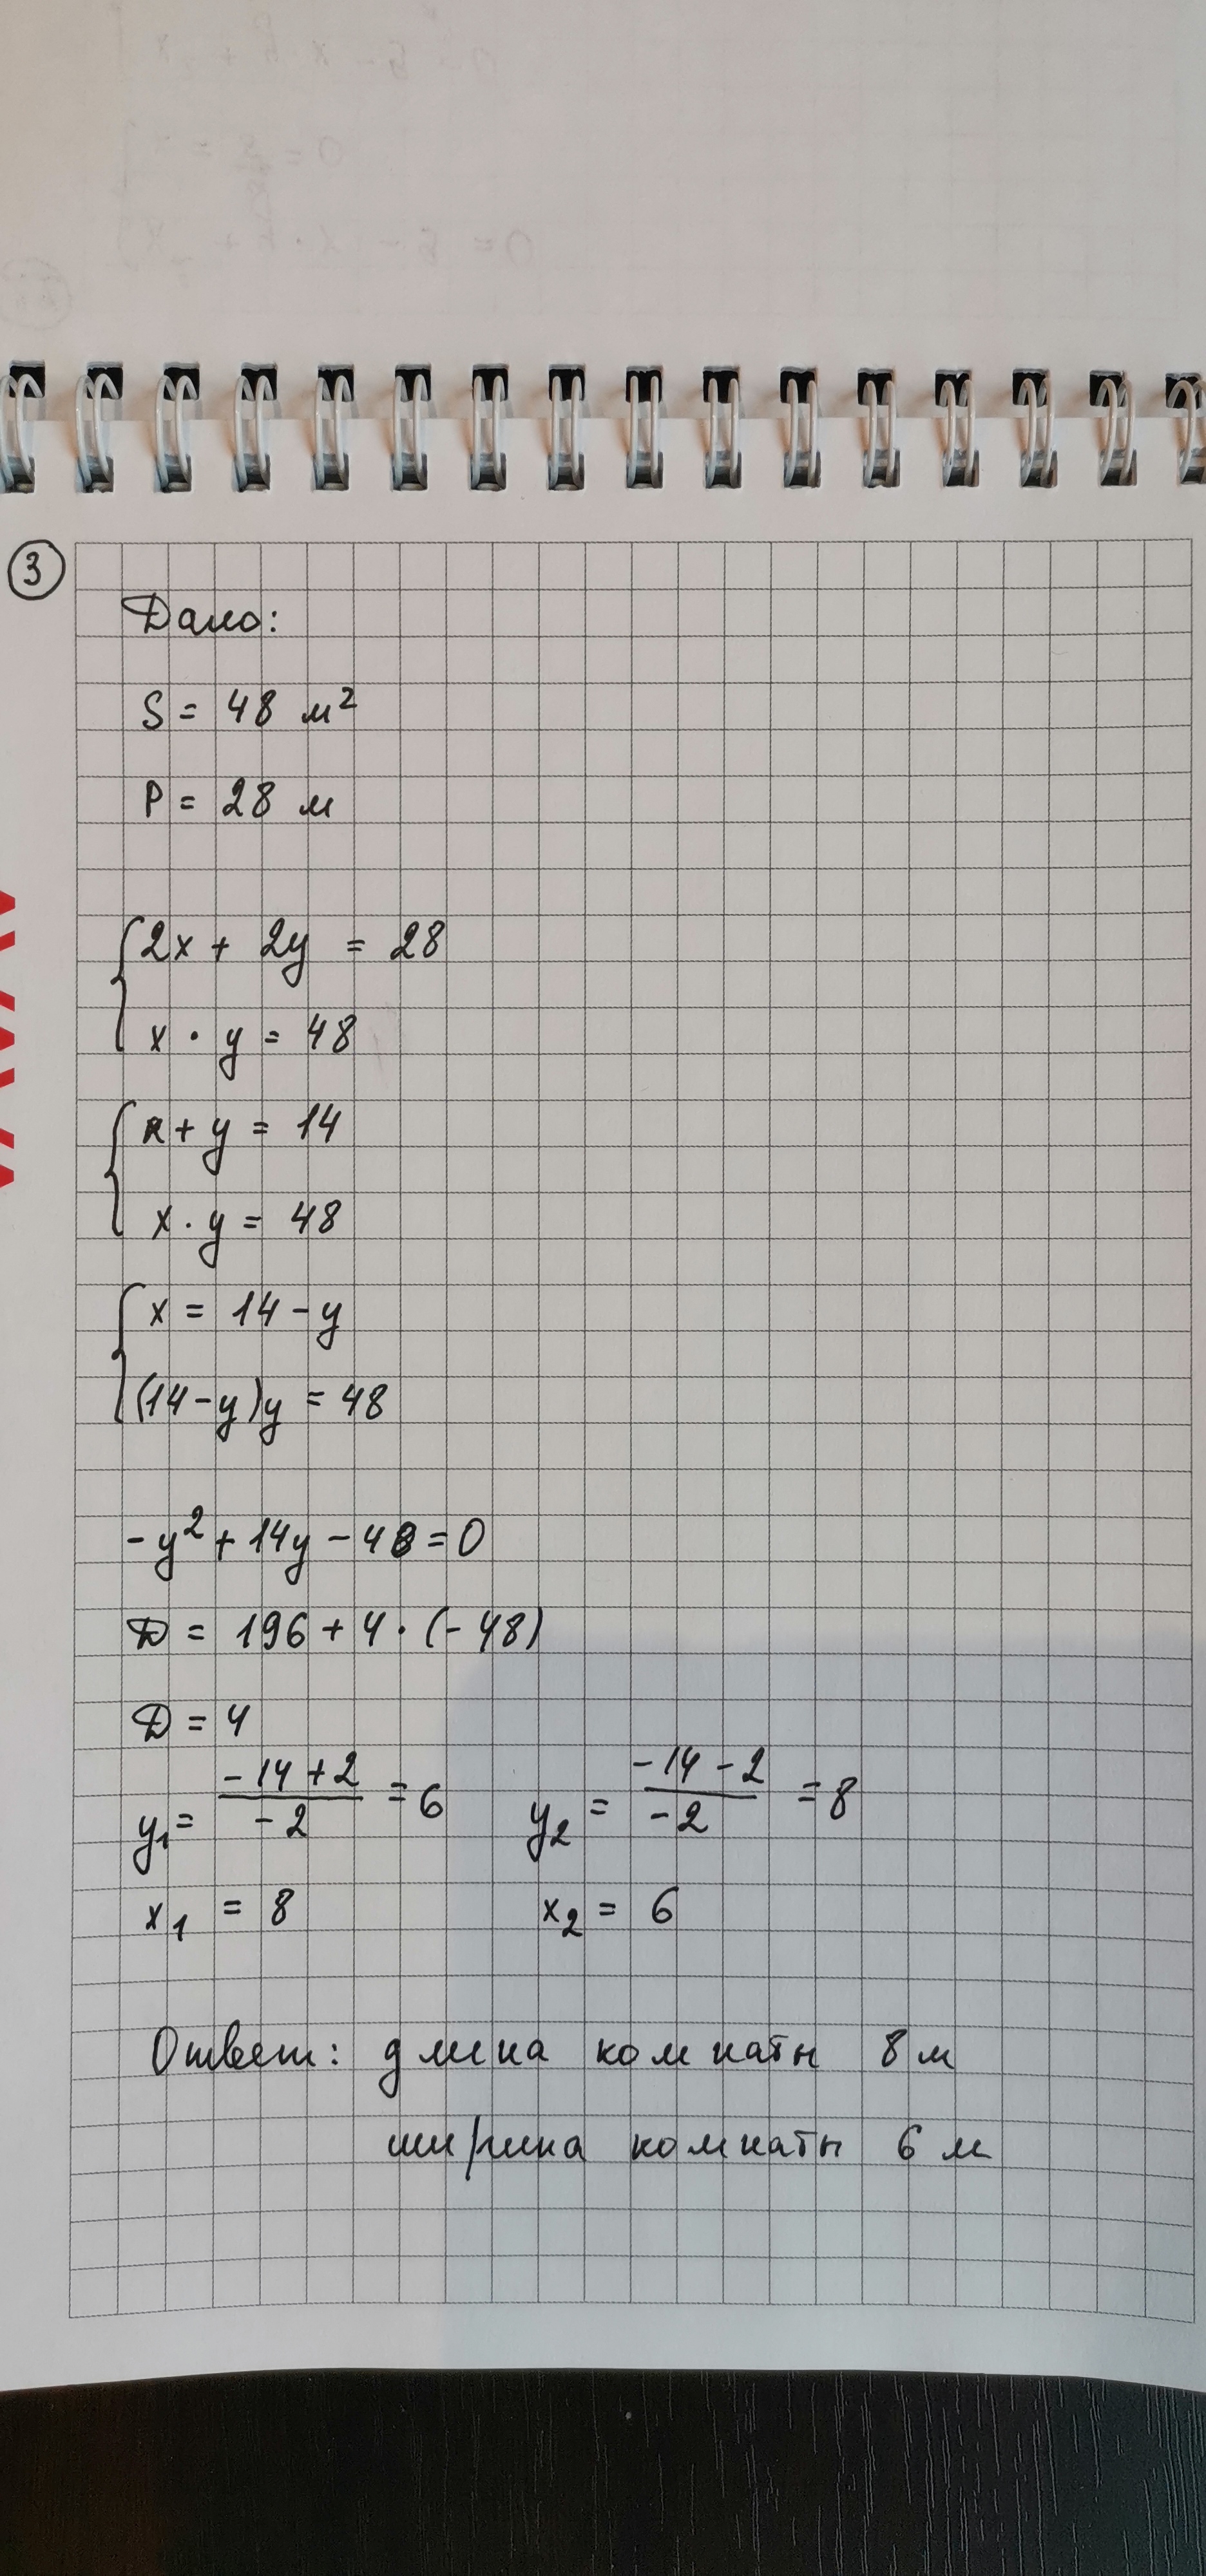 3
Дано:
S = 48 м²
P = 28 м
2x + 2y = 28
x · y = 48
x + y = 14
x · y = 48
x = 14 - y
(14 - y)y = 48
-y² + 14y - 48 = 0
D = 196 + 4 · (-48)
D = 4
y₁ = (-14 + 2)/(-2) = 6 y₂ = (-14 - 2)/(-2) = 8
x₁ = 8 x₂ = 6
Ответ: длина комнаты 8 м
ширина комнаты 6 м